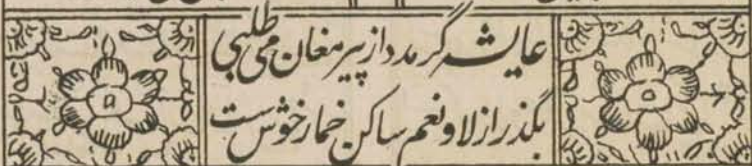 عایشه گر مدد از پیر مغان می طلبی
بگذر از لا و نعم ساکن خمار خوش ست